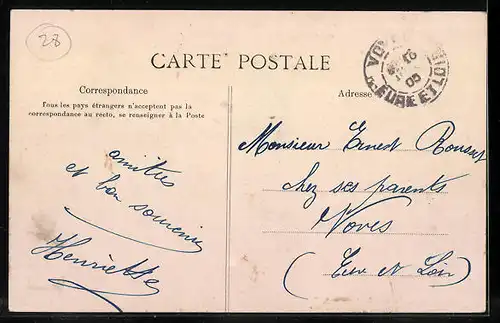 28
CARTE POSTALE
Correspondance
Tous les pays étrangers n'acceptent pas la
correspondance au recto, se renseigner à la Poste
amitiés
et bon souvenir
Henriette
Adresse
Monsieur Ernest Rousset
chez ses parents
Voves
(Eure et Loir)
EURE ET LOIR
05